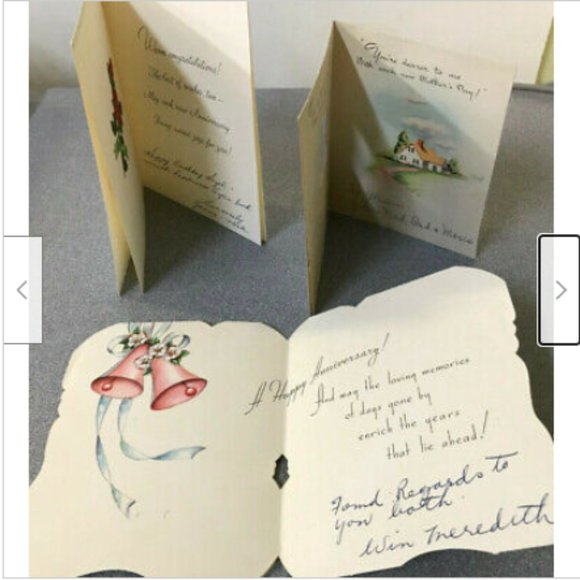 Warm congratulations!
The best of wishes, too—
May each new Anniversary
Bring sweet joys for you!
Happy
"You're dearer to me
With each new Mother's Day!"
Dad &
A Happy Anniversary!
And may the loving memories
of days gone by
enrich the years
that lie ahead!
Fond Regards to
you both.
Win Meredith